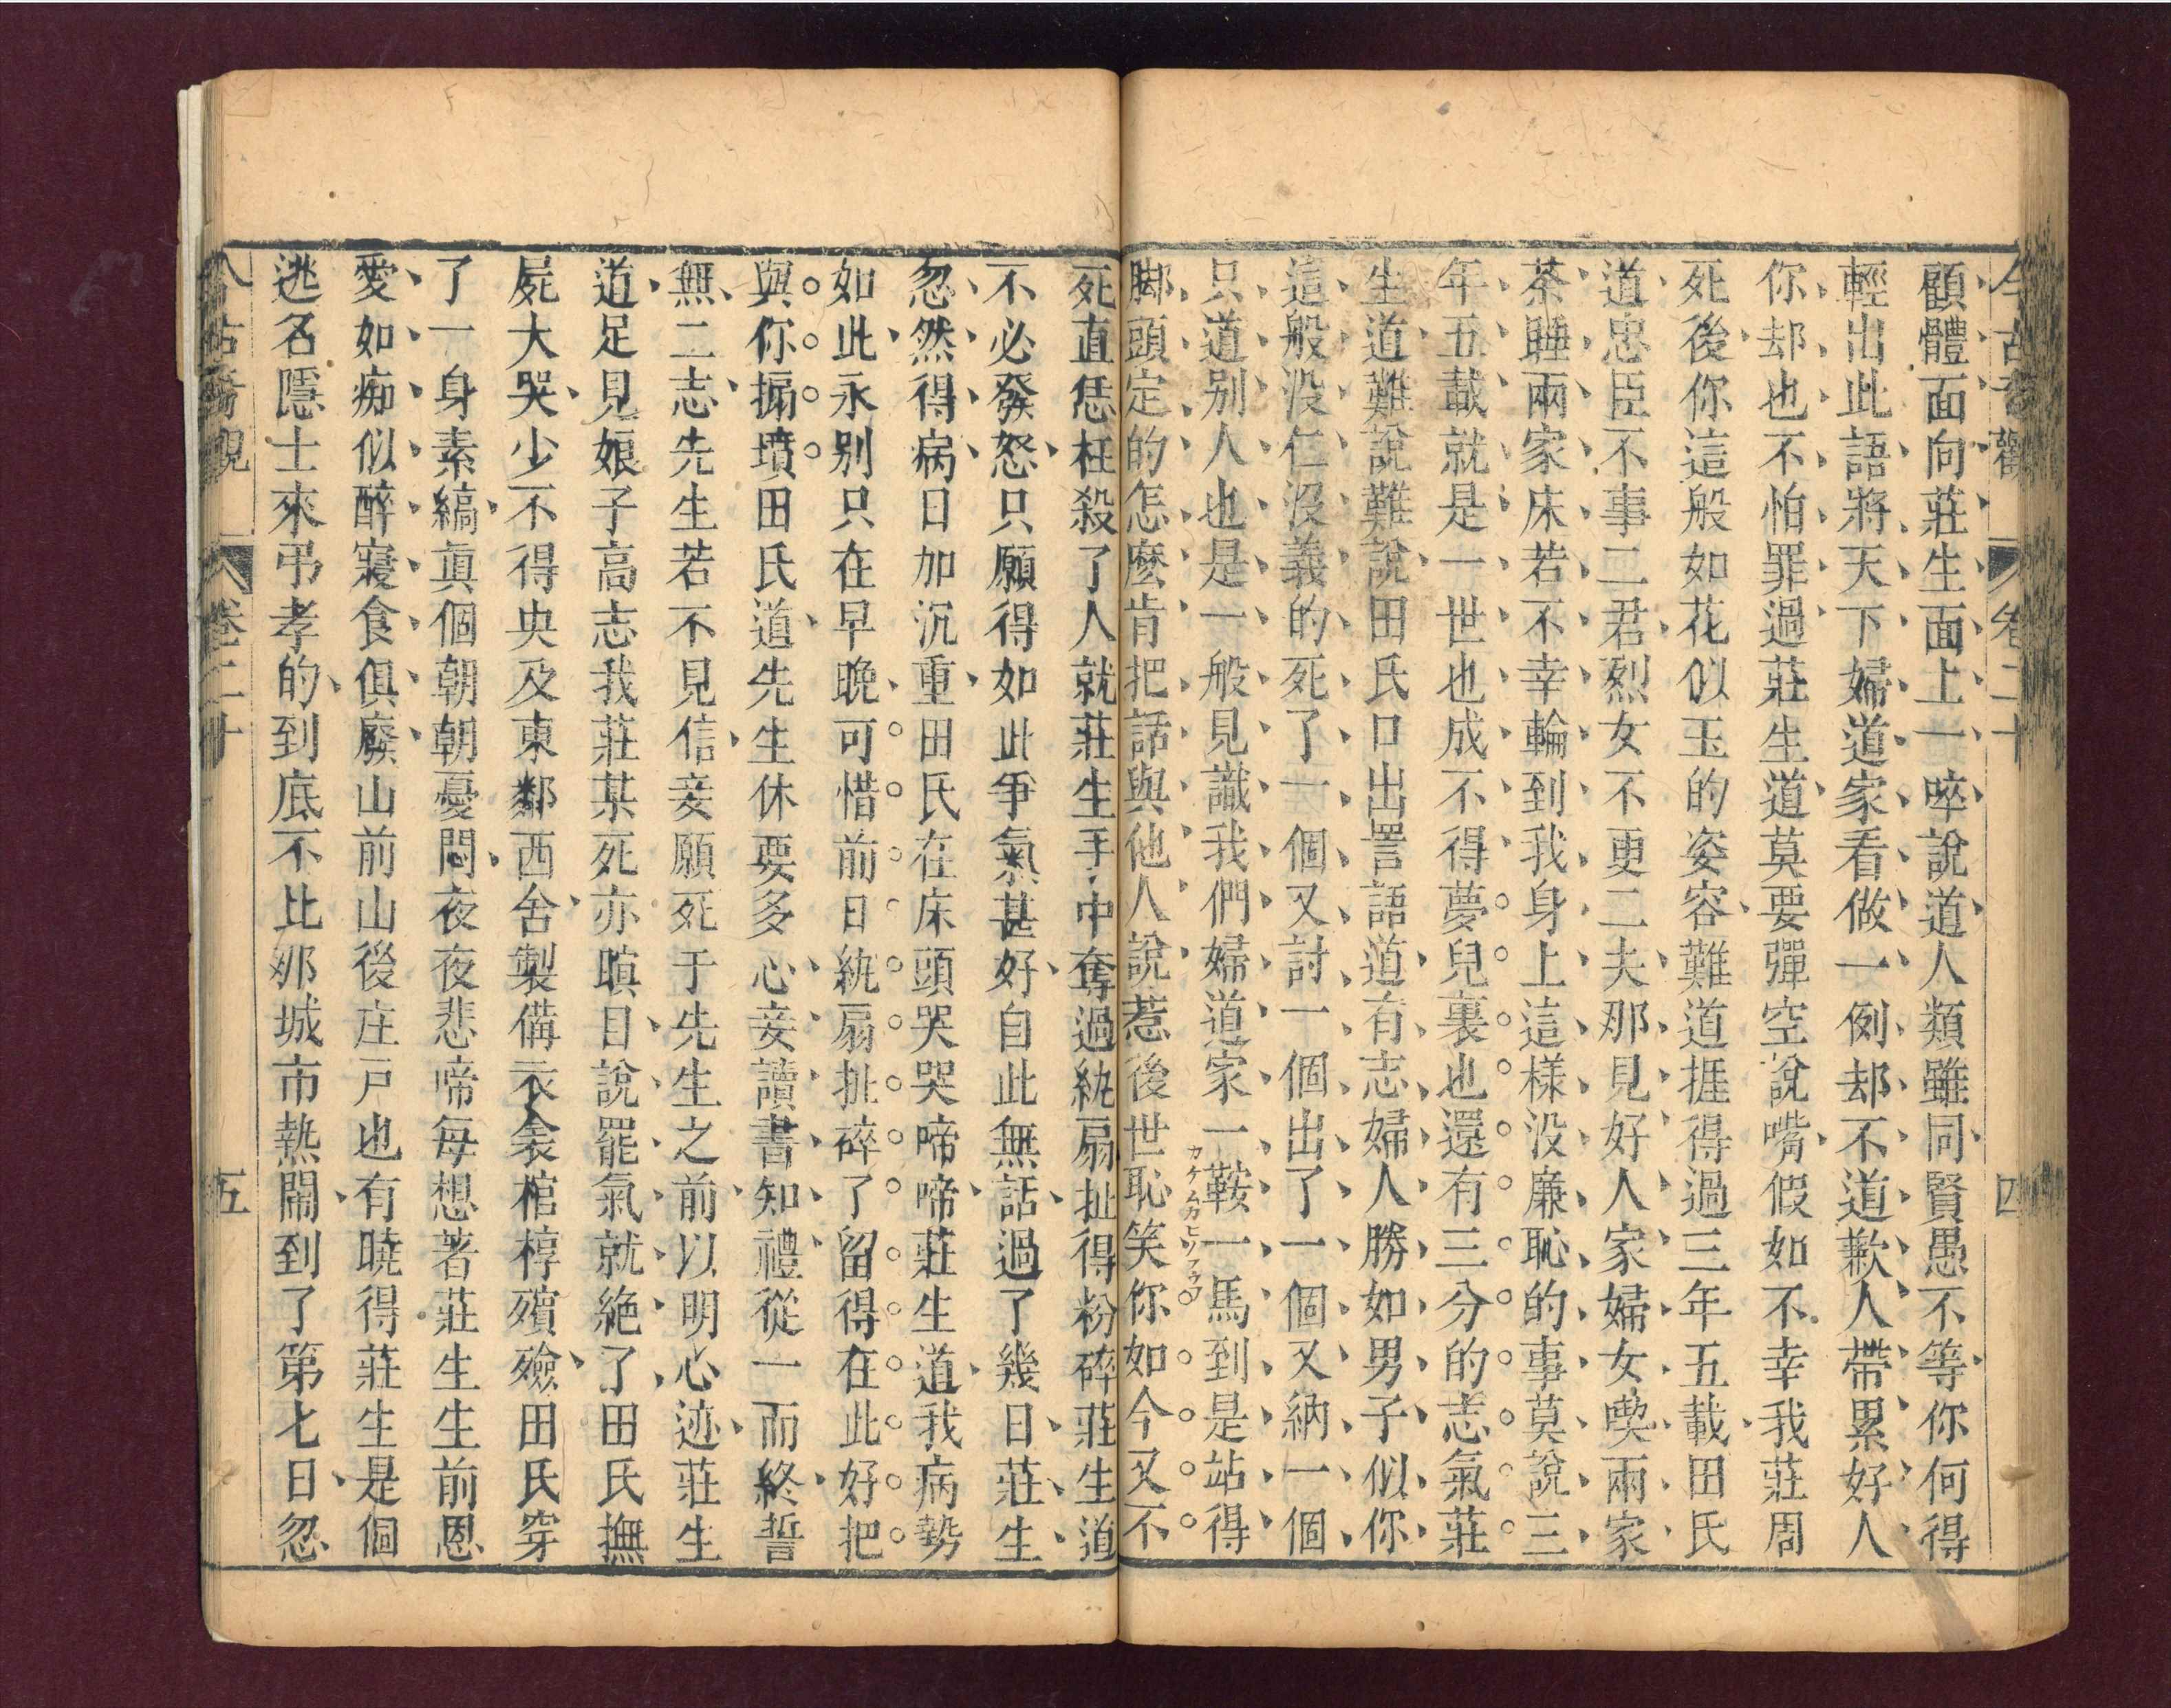 今古奇觀 卷二十 四
顧體面向莊生面上一啐說道人類雖同賢愚不等你何得
輕出此語將天下婦道家看做一例却不道歉人帶累好人
你却也不怕罪過莊生道莫要彈空說嘴假如不幸我莊周
死後你這般如花似玉的姿容難道捱得過三年五載田氏
道忠臣不事二君烈女不更二夫那見好人家婦女喫兩家
茶睡兩家床若不幸輪到我身上這樣没廉恥的事莫說三
年五載就是一世也成不得夢兒裏也還有三分的志氣莊
生道難說難說田氏口出詈語道有志婦人勝如男子似你
這般没仁没義的死了一個又討一個出了一個又納一個
只道別人也是一般見識我們婦道家一鞍一馬到是站得
カケムカヒノフウフ
脚頭定的怎麽肯把話與他人說惹後世恥笑你如今又不
死直恁枉殺了人就莊生手中奪過紈扇扯得粉碎莊生道
不必發怒只願得如此爭氣甚好自此無話過了幾日莊生
忽然得病日加沉重田氏在床頭哭哭啼啼莊生道我病勢
如此永別只在早晚可惜前日紈扇扯碎了留得在此好把
與你搧墳田氏道先生休要多心妾讀書知禮從一而終誓
無二志先生若不見信妾願死于先生之前以明心迹莊生
道足見娘子高志我莊某死亦瞋目說罷氣就絶了田氏撫
屍大哭少不得央及東鄰西舍製備衣衾棺椁殯殮田氏穿
了一身素縞真個朝朝憂悶夜夜悲啼每想著莊生生前恩
愛如痴似醉寢食俱廢山前山後庄戶也有曉得莊生是個
逃名隱士來弔孝的到底不比那城市熱鬧到了第七日忽
今古奇觀 卷二十 五